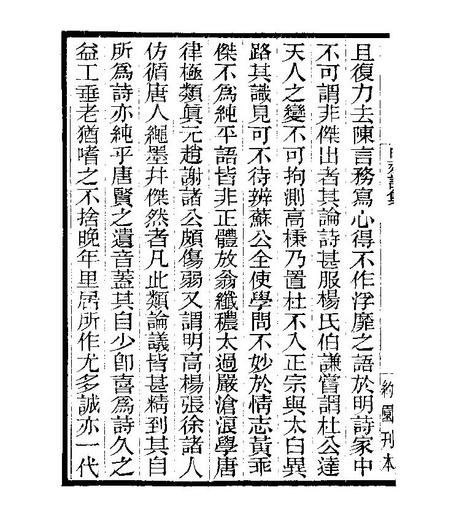 約園刊本
且復力去陳言務寫心得不作浮靡之語於明詩家中
不可謂非傑出者其論詩甚服楊氏伯謙嘗謂杜公達
天人之變不可拘測高棅乃置杜不入正宗與太白異
路其識見可不待辨蘇公全使學問不妙於情志黃乖
傑不為純乎語皆非正體放翁纖穠太過嚴滄浪學唐
律極類眞元趙謝諸公頗傷弱又謂明高楊張徐諸人
仿循唐人繩墨井傑然者凡此類論議皆甚精到其自
所為詩亦純乎唐賢之遺音蓋其自少卽喜為詩久之
益工垂老猶嗜之不捨晚年里居所作尤多誠亦一代